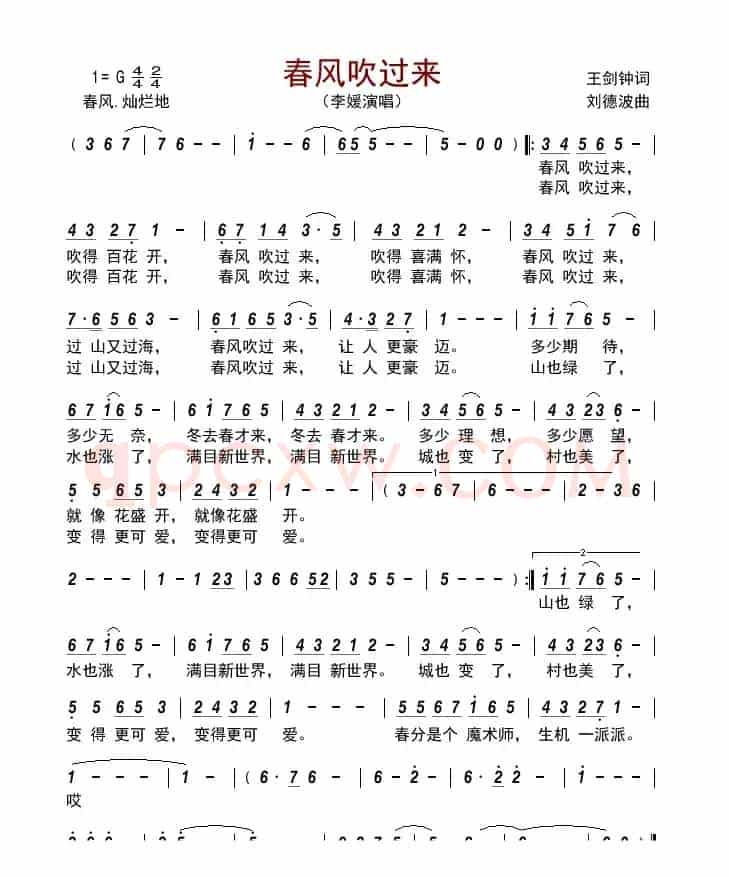 春风吹过来
1=G 4/4 2/4
王剑钟词
春风.灿烂地
（李媛演唱）
刘德波曲
( 3 6 7 | 7 6 - - | 1 - - 6 | 6 5 5 - - | 5 - 0 0 ) ‖: 3 4 5 6 5 - |
春风 吹过来，
春风 吹过来，
4 3 2 7 1 - | 6 7 1 4 3 · 5 | 4 3 2 1 2 - | 3 4 5 1 7 6 |
吹得 百花 开， 春风 吹过 来， 吹得 喜满 怀， 春风 吹过 来，
吹得 百花 开， 春风 吹过 来， 吹得 喜满 怀， 春风 吹过 来，
7 · 6 5 6 3 - | 6 1 6 5 3 · 5 | 4 · 3 2 7 | 1 - - - | 1 1 7 6 5 |
过 山又过海， 春风吹过 来， 让 人 更豪 迈。 多少期 待，
过 山又过海， 春风吹过 来， 让 人 更豪 迈。 山也绿 了，
6 7 1 6 5 - | 6 1 7 6 5 | 4 3 2 1 2 - | 3 4 5 6 5 - | 4 3 2 3 6 - |
多少无 奈， 冬去春才来， 冬去 春才来。 多少 理 想， 多少愿 望，
水也涨 了， 满目新世界， 满目 新世界。 城也 变 了， 村也美 了，
qpcxw.COM
5 5 6 5 3 | 2 4 3 2 | 1 - - - | 1 ( 3 - 6 7 | 6 - - - |
就 像 花盛 开， 就像花盛 开。
变 得 更可 爱， 变得更可 爱。
2 - - - | 1 - 1 2 3 | 3 6 6 5 2 | 5 - - - ) :‖ 2 1 1 7 6 5 - |
山也 绿 了，
6 7 1 6 5 - | 6 1 7 6 5 | 4 3 2 1 2 - | 3 4 5 6 5 - | 4 3 2 3 6 - |
水也涨 了， 满目新世界， 满目 新世界。 城也 变 了， 村也美 了，
5 5 6 5 3 | 2 4 3 2 | 1 - - - | 5 5 6 7 1 6 5 | 4 3 2 7 1 - |
变 得 更可 爱， 变得更可 爱。 春分是个 魔术师， 生机 一派派。
1 - - - | 1 - | ( 6 · 7 6 | 6 - 2 - | 2 - - - | 6 · 2 2 - |
哎